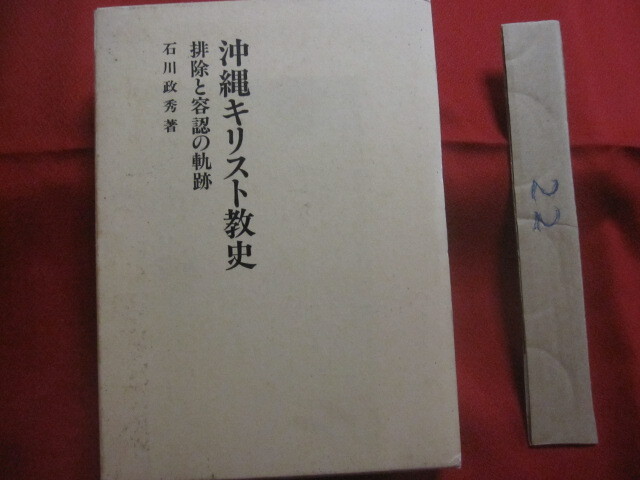 沖縄キリスト教史
排除と容認の軌跡
石川政秀著
22